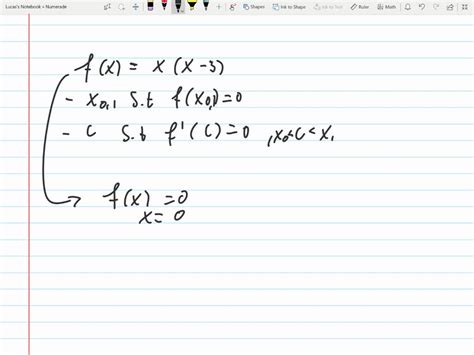 Lucas's Notebook » Numerade
Shapes Ink to Shape Ink to Text Ruler Math
f(x) = x(x-3)
- x0,1 s.t f(x0,1)=0
- c s.t f'(c)=0 , x0<c<x1
f(x) = 0
x = 0